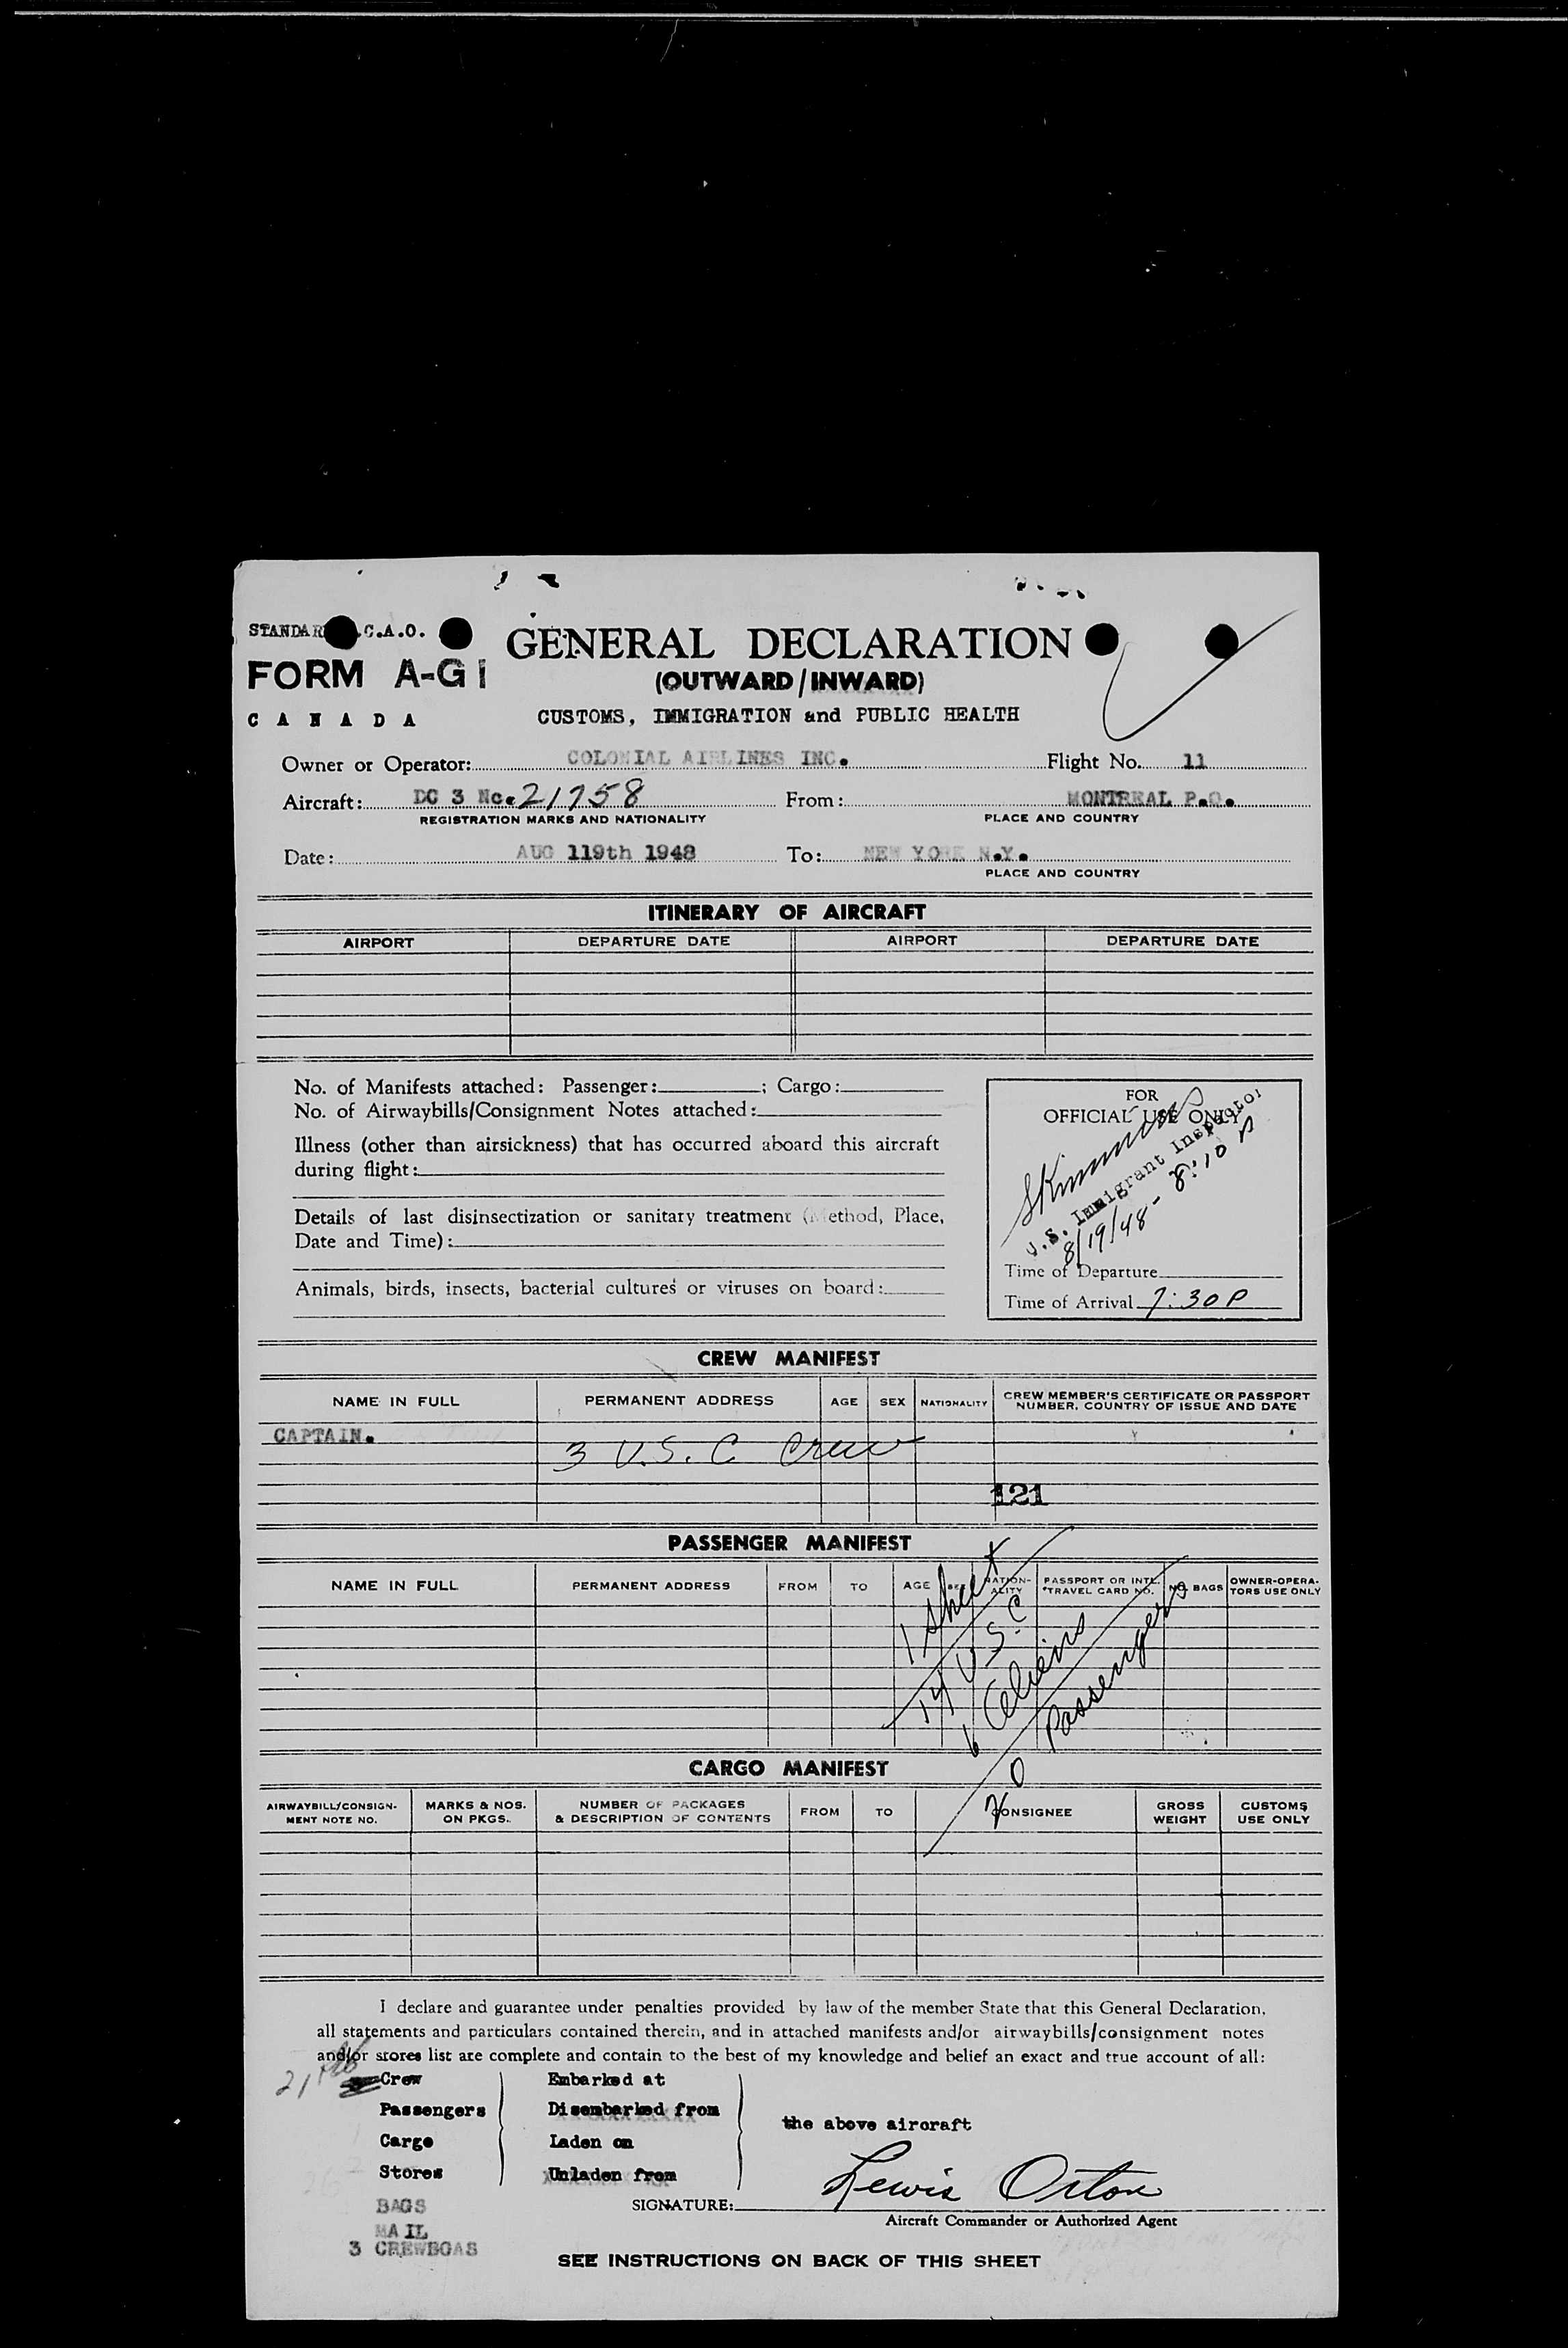 STANDARD I.C.A.O.
GENERAL DECLARATION
FORM A-G1
(OUTWARD/INWARD)
CANADA
CUSTOMS, IMMIGRATION and PUBLIC HEALTH
Owner or Operator: COLONIAL AIRLINES INC. Flight No. 11
Aircraft: DC 3 Nc. 21758 From: MONTREAL P.Q.
REGISTRATION MARKS AND NATIONALITY PLACE AND COUNTRY
Date: AUG 119th 1948 To: NEW YORK N.Y.
PLACE AND COUNTRY
ITINERARY OF AIRCRAFT
AIRPORT DEPARTURE DATE AIRPORT DEPARTURE DATE
No. of Manifests attached: Passenger: ; Cargo:
No. of Airwaybills/Consignment Notes attached:
Illness (other than airsickness) that has occurred aboard this aircraft
during flight:
Details of last disinsectization or sanitary treatment (Method, Place,
Date and Time):
Animals, birds, insects, bacterial cultures or viruses on board:
FOR
OFFICIAL USE ONLY
U.S. Immigrant Inspector
8/19/48 - 8:10 P
Time of Departure
Time of Arrival 7:30 P
CREW MANIFEST
NAME IN FULL PERMANENT ADDRESS AGE SEX NATIONALITY CREW MEMBER'S CERTIFICATE OR PASSPORT
NUMBER, COUNTRY OF ISSUE AND DATE
CAPTAIN.
3 U.S.C Crew
121
PASSENGER MANIFEST
NAME IN FULL PERMANENT ADDRESS FROM TO AGE SEX NATION-
ALITY PASSPORT OR INTL.
*TRAVEL CARD NO. NO. BAGS OWNER-OPERA-
TORS USE ONLY
1 Sheet
14 U.S.C
6 Aliens
20 Passengers
CARGO MANIFEST
AIRWAYBILL/CONSIGN-
MENT NOTE NO. MARKS & NOS.
ON PKGS. NUMBER OF PACKAGES
& DESCRIPTION OF CONTENTS FROM TO CONSIGNEE GROSS
WEIGHT CUSTOMS
USE ONLY
I declare and guarantee under penalties provided by law of the member State that this General Declaration,
all statements and particulars contained therein, and in attached manifests and/or airwaybills/consignment notes
and/or stores list are complete and contain to the best of my knowledge and belief an exact and true account of all:
21
Crew Embarked at
Passengers Disembarked from
the above aircraft
Cargo Laden on
Stores Unladen from
BAGS
SIGNATURE: Lewis Orton
Aircraft Commander or Authorized Agent
MAIL
3 CREWBGAS
SEE INSTRUCTIONS ON BACK OF THIS SHEET